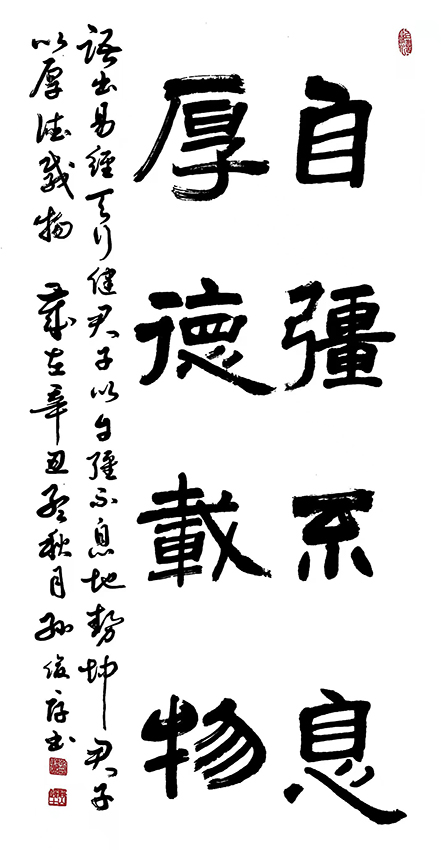 自彊不息
厚德載物
語出易經天行健君子以自彊不息地勢坤君子
以厚德載物 歲在辛丑孟秋月孫俊書